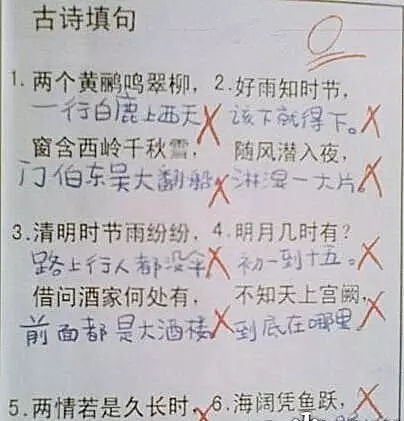 古诗填句
0
1. 两个黄鹂鸣翠柳，
一行白鹿上西天
窗含西岭千秋雪，
门伯东吴大翻船
2. 好雨知时节，
该下就得下。
随风潜入夜，
淋湿一大片。
3. 清明时节雨纷纷，
路上行人都没伞
借问酒家何处有，
前面都是大酒楼
4. 明月几时有？
初一到十五。
不知天上宫阙，
到底在哪里
5. 两情若是久长时，
6. 海阔凭鱼跃，